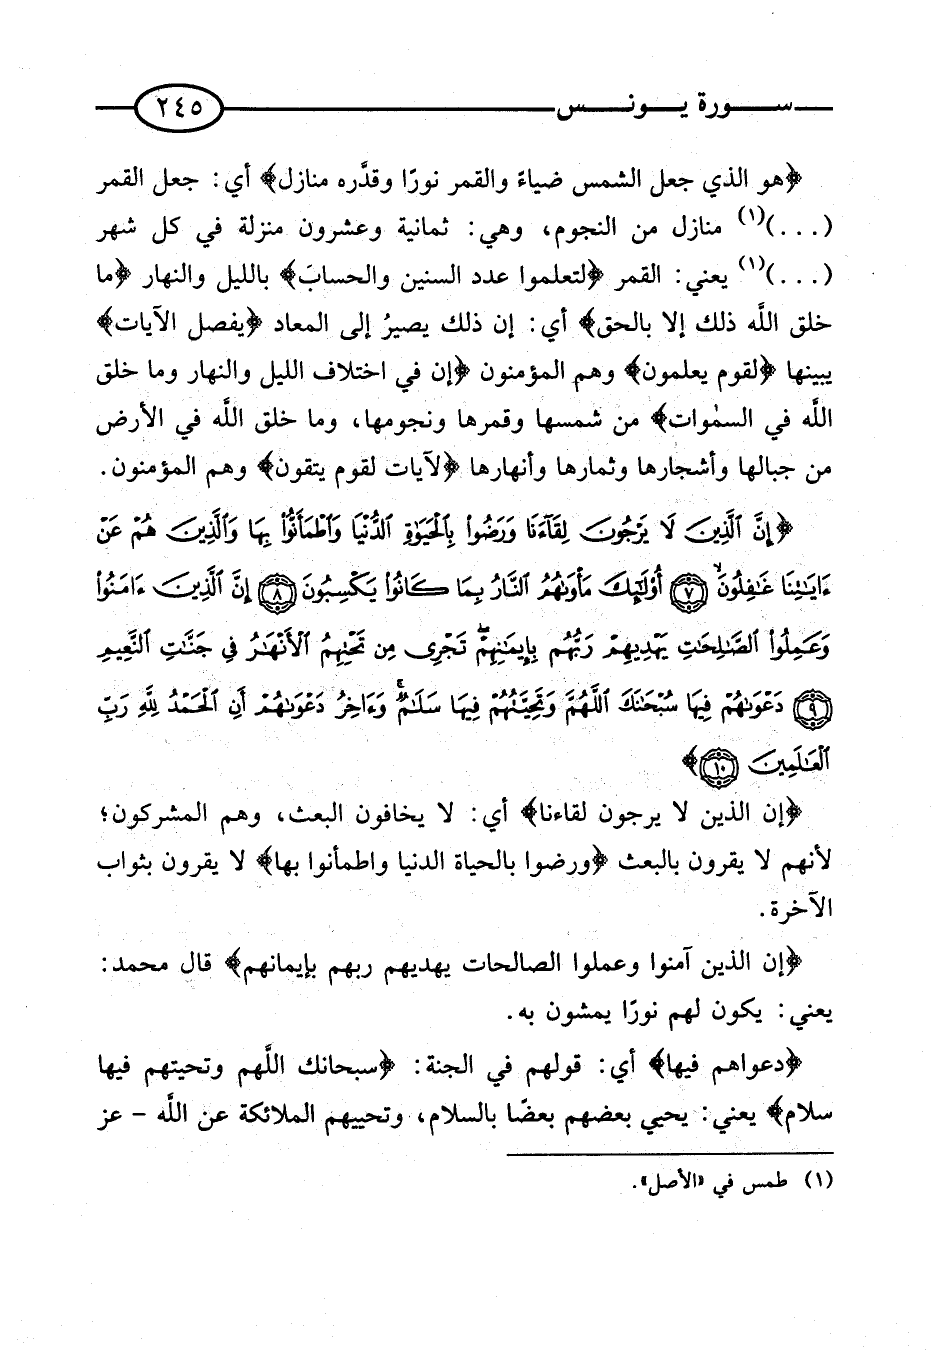 سورة يونس ٢٤٥
﴿هو الذي جعل الشمس ضياءً والقمر نورًا وقدَّره منازل﴾ أي: جعل القمر
(...)(١) منازل من النجوم، وهي: ثمانية وعشرون منزلة في كل شهر
(...)(١) يعني: القمر ﴿لتعلموا عدد السنين والحسابَ﴾ بالليل والنهار ﴿ما
خلق اللَّه ذلك إلا بالحق﴾ أي: إن ذلك يصيرُ إلى المعاد ﴿يفصل الآيات﴾
يبينها ﴿لقوم يعلمون﴾ وهم المؤمنون ﴿إن في اختلاف الليل والنهار وما خلق
اللَّه في السمٰوات﴾ من شمسها وقمرها ونجومها، وما خلق اللَّه في الأرض
من جبالها وأشجارها وثمارها وأنهارها ﴿لآيات لقوم يتقون﴾ وهم المؤمنون.
﴿إِنَّ ٱلَّذِينَ لَا يَرْجُونَ لِقَآءَنَا وَرَضُوا۟ بِٱلْحَيَوٰةِ ٱلدُّنْيَا وَٱطْمَأَنُّوا۟ بِهَا وَٱلَّذِينَ هُمْ عَنْ
ءَايَٰتِنَا غَٰفِلُونَۙ ٧ أُو۟لَٰٓئِكَ مَأْوَىٰهُمُ ٱلنَّارُ بِمَا كَانُوا۟ يَكْسِبُونَ ٨ إِنَّ ٱلَّذِينَ ءَامَنُوا۟
وَعَمِلُوا۟ ٱلصَّٰلِحَٰتِ يَهْدِيهِمْ رَبُّهُم بِإِيمَٰنِهِمْۖ تَجْرِى مِن تَحْتِهِمُ ٱلْأَنْهَٰرُ فِى جَنَّٰتِ ٱلنَّعِيمِ
٩ دَعْوَىٰهُمْ فِيهَا سُبْحَٰنَكَ ٱللَّهُمَّ وَتَحِيَّتُهُمْ فِيهَا سَلَٰمٌۚ وَءَاخِرُ دَعْوَىٰهُمْ أَنِ ٱلْحَمْدُ لِلَّهِ رَبِّ
ٱلْعَٰلَمِينَ ١٠﴾
﴿إن الذين لا يرجون لقاءنا﴾ أي: لا يخافون البعث، وهم المشركون؛
لأنهم لا يقرون بالبعث ﴿ورضوا بالحياة الدنيا واطمأنوا بها﴾ لا يقرون بثواب
الآخرة.
﴿إن الذين آمنوا وعملوا الصالحات يهديهم ربهم بإيمانهم﴾ قال محمد:
يعني: يكون لهم نورًا يمشون به.
﴿دعواهم فيها﴾ أي: قولهم في الجنة: ﴿سبحانك اللَّهم وتحيتهم فيها
سلام﴾ يعني: يحيي بعضهم بعضًا بالسلام، وتحييهم الملائكة عن اللَّه - عز
(١) طمس في «الأصل».